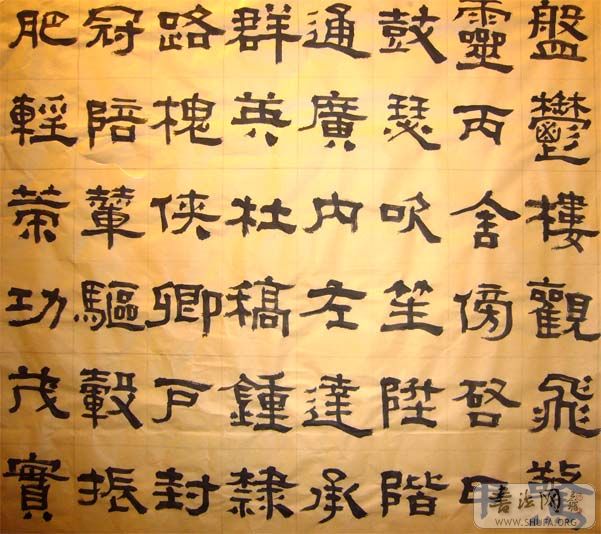 盤鬱樓觀飛驚
靈丙舍傍啓甲
鼓瑟吹笙陞階
通廣内左達承
群英杜稿鍾隸
路槐俠卿戶封
冠陪輦驅轂振
肥輕策功茂實
書法网
WWW.SHUFA.ORG